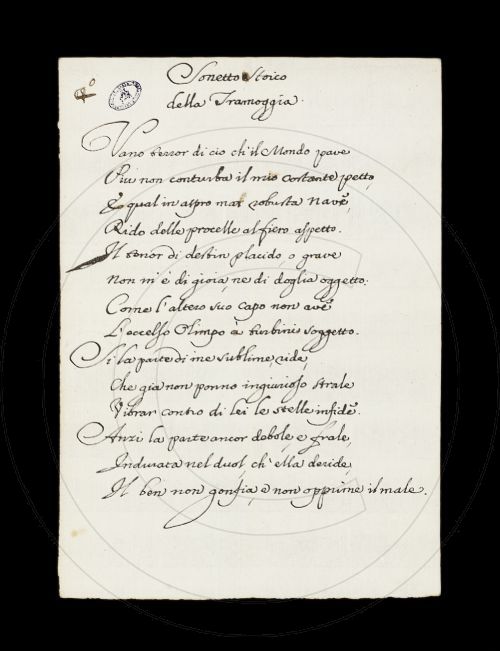 4°
Sonetto Stoico
della Tramoggia.
Vano terror di cio ch'il Mondo pave
Piu non conturba il mio costante petto,
E qual in aspro mar robusta Nave,
Rido delle procelle al fiero aspetto.
Il tenor di destin placido, o grave
Non m'è di gioia, ne di doglia oggetto:
Come l'altero suo capo non ave
L'eccelso Olimpo à turbini soggetto.
Si la parte di me sublime, ride,
Che gia non ponno ingiurioso strale
Vibrar contro di lei le stelle infide.
Anzi la parte ancor debole, e frale,
Indurata nel duol, ch'ella deride,
Il ben non gonfia, e non opprime il male.